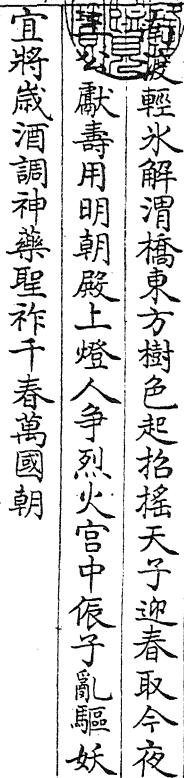 渡輕冰解渭橋東方樹色起招搖天子迎春取今夜
獻壽用明朝殿上燈人争烈火宫中侲子亂驅妖
宜將歲酒調神藥聖祚千春萬國朝